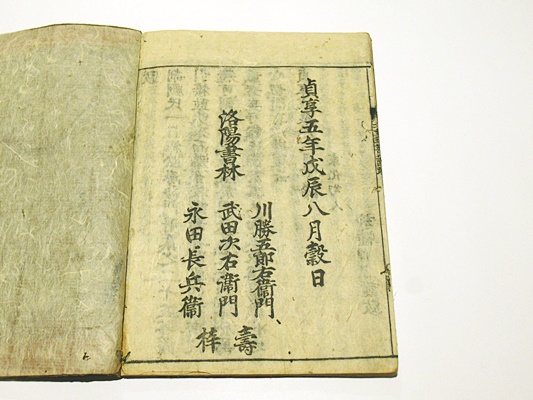 貞享五年戊辰八月穀日
洛陽書林
川勝五郎右衛門
武田次右衛門
永田長兵衛
壽梓